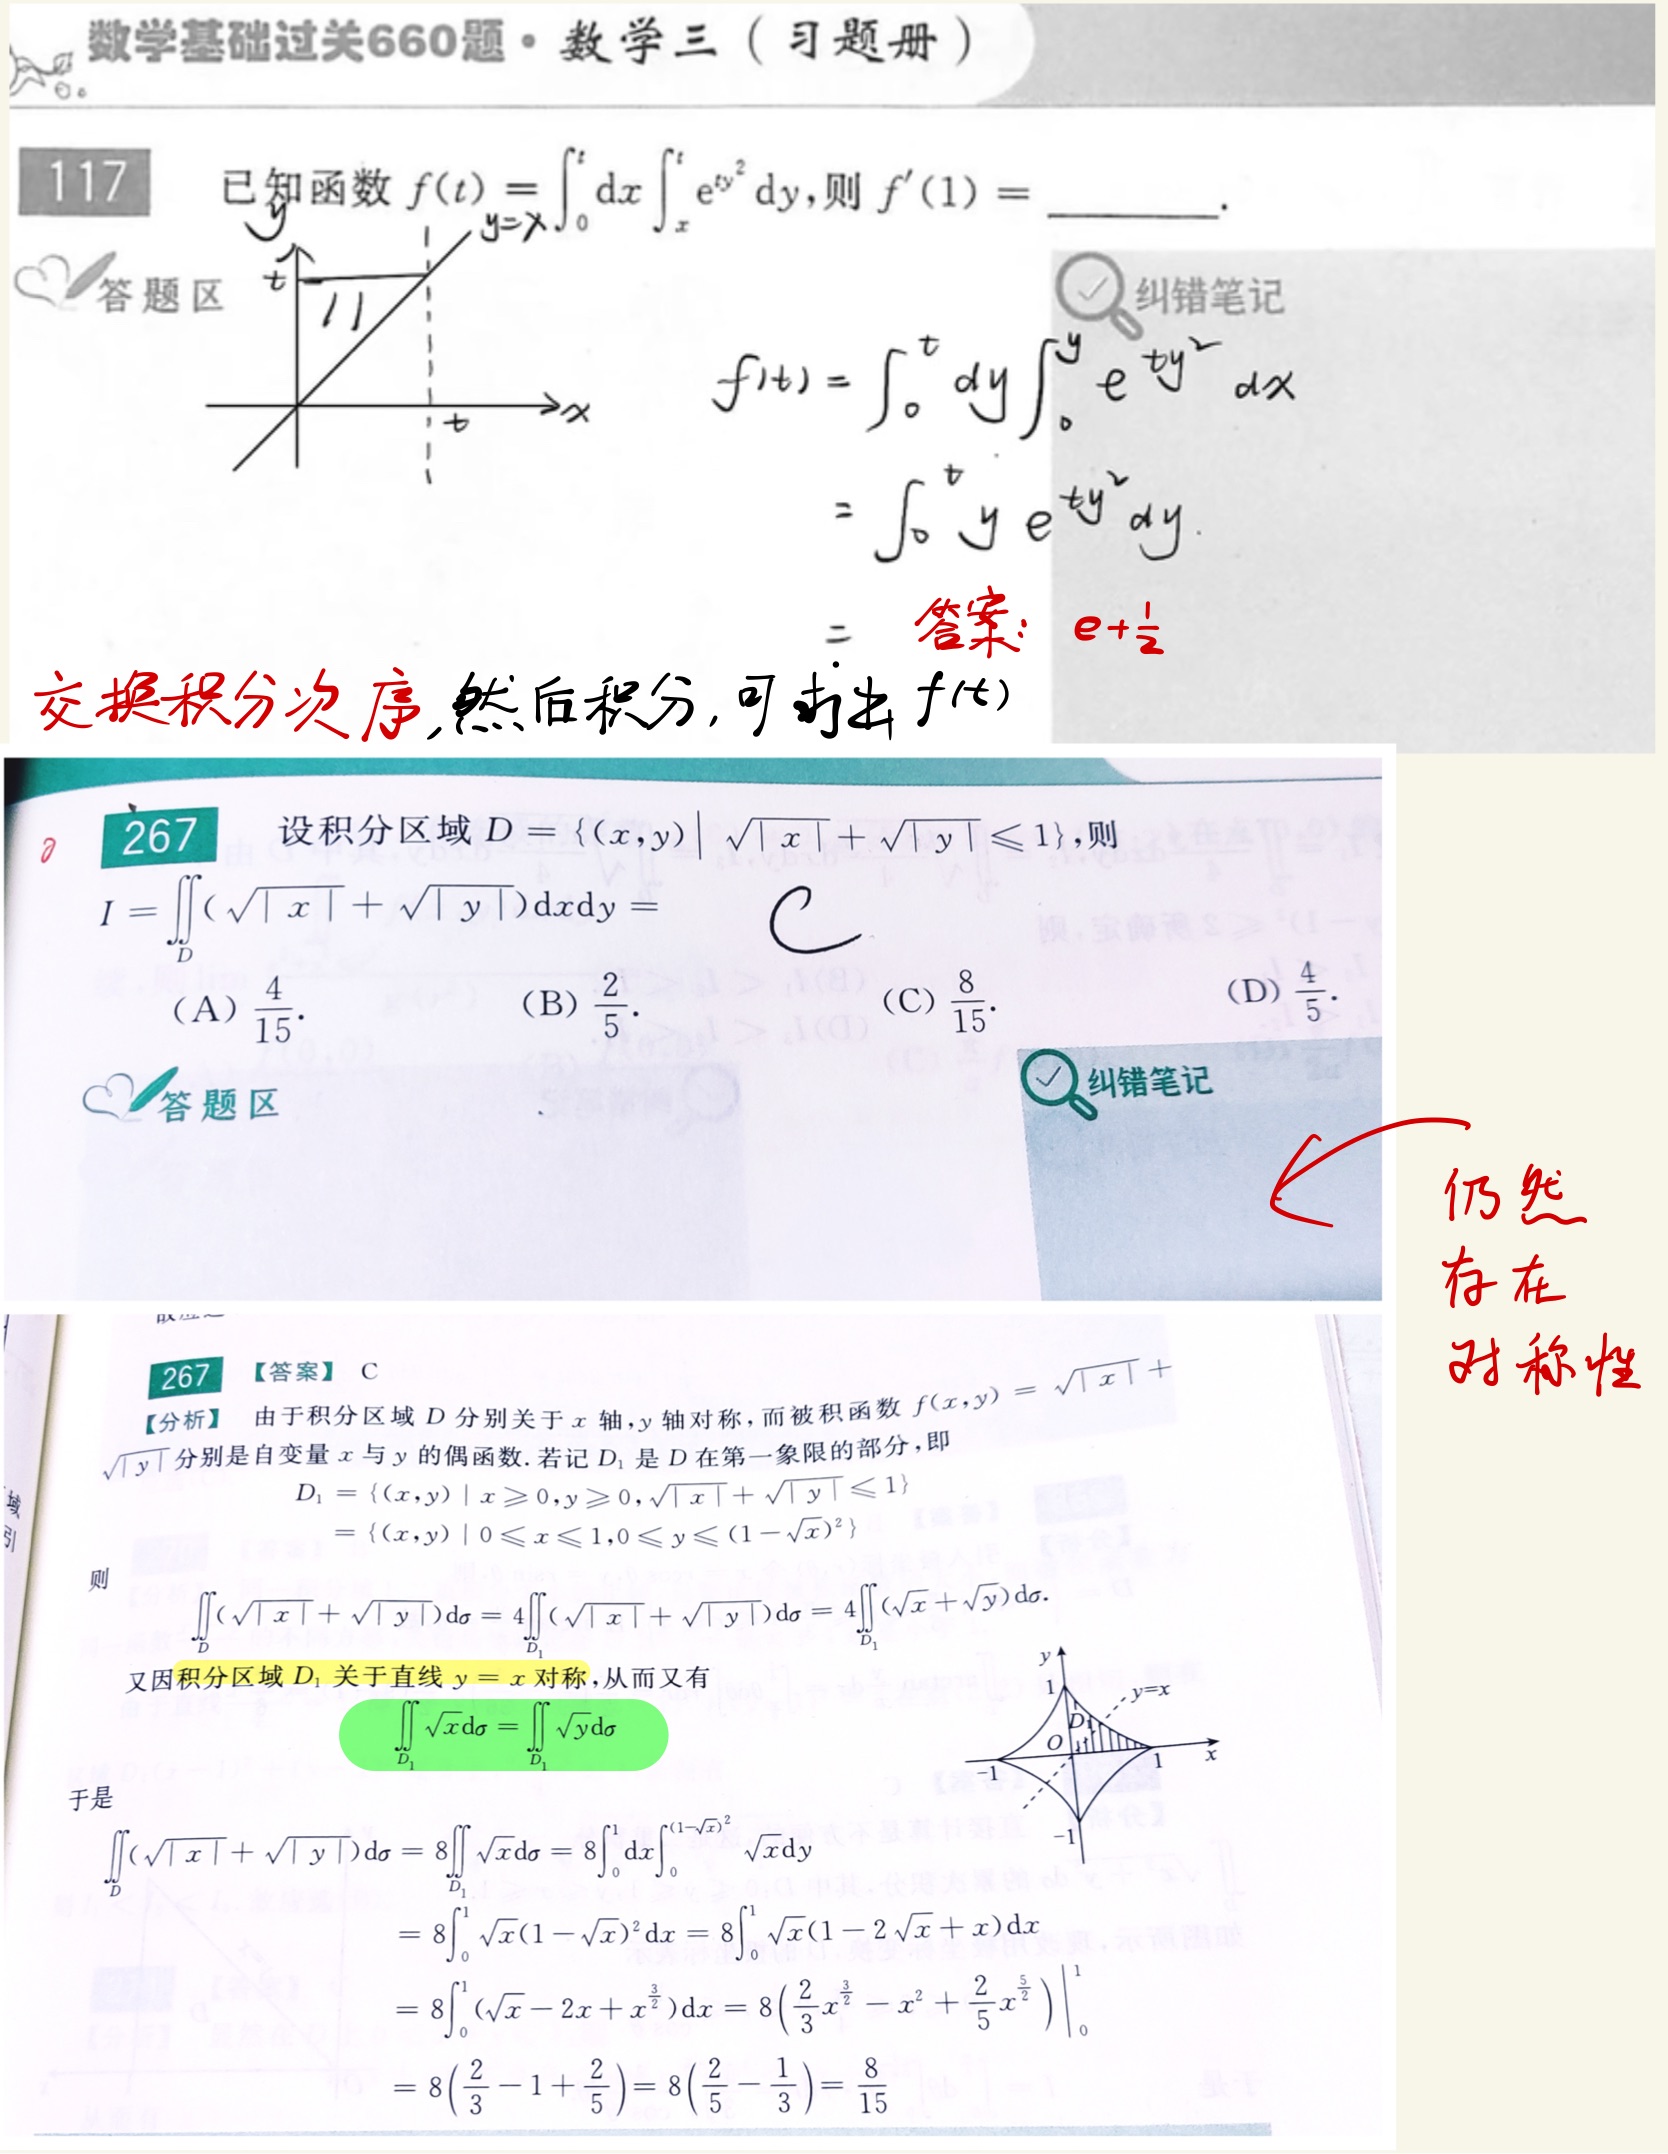 数学基础过关660题·数学三（习题册）
117 已知函数 f(t) = ∫₀ᵗ dx ∫ₓᵗ e^{ty²} dy,则 f′(1) = ______.
y
y=x
t
答题区
纠错笔记
t
x
f(t) = ∫₀ᵗ dy ∫₀ʸ e^{ty²} dx
= ∫₀ᵗ y e^{ty²} dy.
= 答案: e+1/2
交换积分次序,然后积分,可求出 f(t)
267 设积分区域 D = {(x,y)| √|x| + √|y| ⩽ 1},则
I = ∬_D (√|x| + √|y|)dxdy =
C
(A) 4/15. (B) 2/5. (C) 8/15. (D) 4/5.
答题区
纠错笔记
仍然
存在
对称性
267 【答案】 C
【分析】 由于积分区域 D 分别关于 x 轴,y 轴对称,而被积函数 f(x,y) = √|x| +
√|y| 分别是自变量 x 与 y 的偶函数.若记 D₁ 是 D 在第一象限的部分,即
D₁ = {(x,y) | x ⩾ 0,y ⩾ 0,√|x| + √|y| ⩽ 1}
= {(x,y) | 0 ⩽ x ⩽ 1,0 ⩽ y ⩽ (1−√x)²}
则
∬_D (√|x| + √|y|)dσ = 4∬_{D₁} (√|x| + √|y|)dσ = 4∬_{D₁} (√x + √y)dσ.
又因积分区域 D₁ 关于直线 y = x 对称,从而又有
∬_{D₁} √x dσ = ∬_{D₁} √y dσ
y
1
y=x
D₁
O
−1
1
x
−1
于是
∬_D (√|x| + √|y|)dσ = 8∬_{D₁} √x dσ = 8∫₀¹ dx ∫₀^{(1−√x)²} √x dy
= 8∫₀¹ √x(1−√x)² dx = 8∫₀¹ √x(1−2√x+x)dx
= 8∫₀¹ (√x − 2x + x^{3/2})dx = 8(2/3 x^{3/2} − x² + 2/5 x^{5/2})|₀¹
= 8(2/3 − 1 + 2/5) = 8(2/5 − 1/3) = 8/15